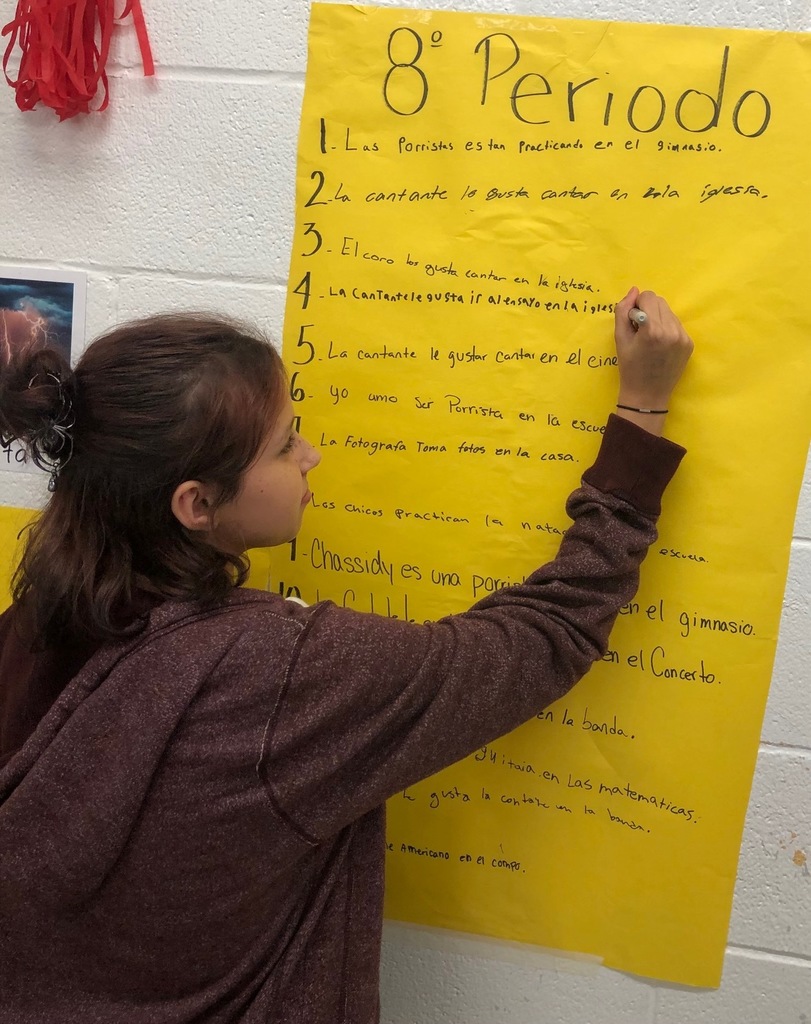 8º Periodo
1- Las Porristas estan practicando en el gimnasio.
2- La cantante le gusta cantar en la iglesia.
3- El coro los gusta cantar en la iglesia.
4- La Cantante le gusta ir al ensayo en la igles
5- La cantante le gustar cantar en el cine
6- yo amo ser Porrista en la escue
La Fotografa Toma fotos en la casa.
Los chicos Practican la nata escuela.
Chassidy es una porris en el gimnasio.
10 en el Concerto.
en la banda.
en Las matematicas.
gusta la en la banda.
Americano en el
ta